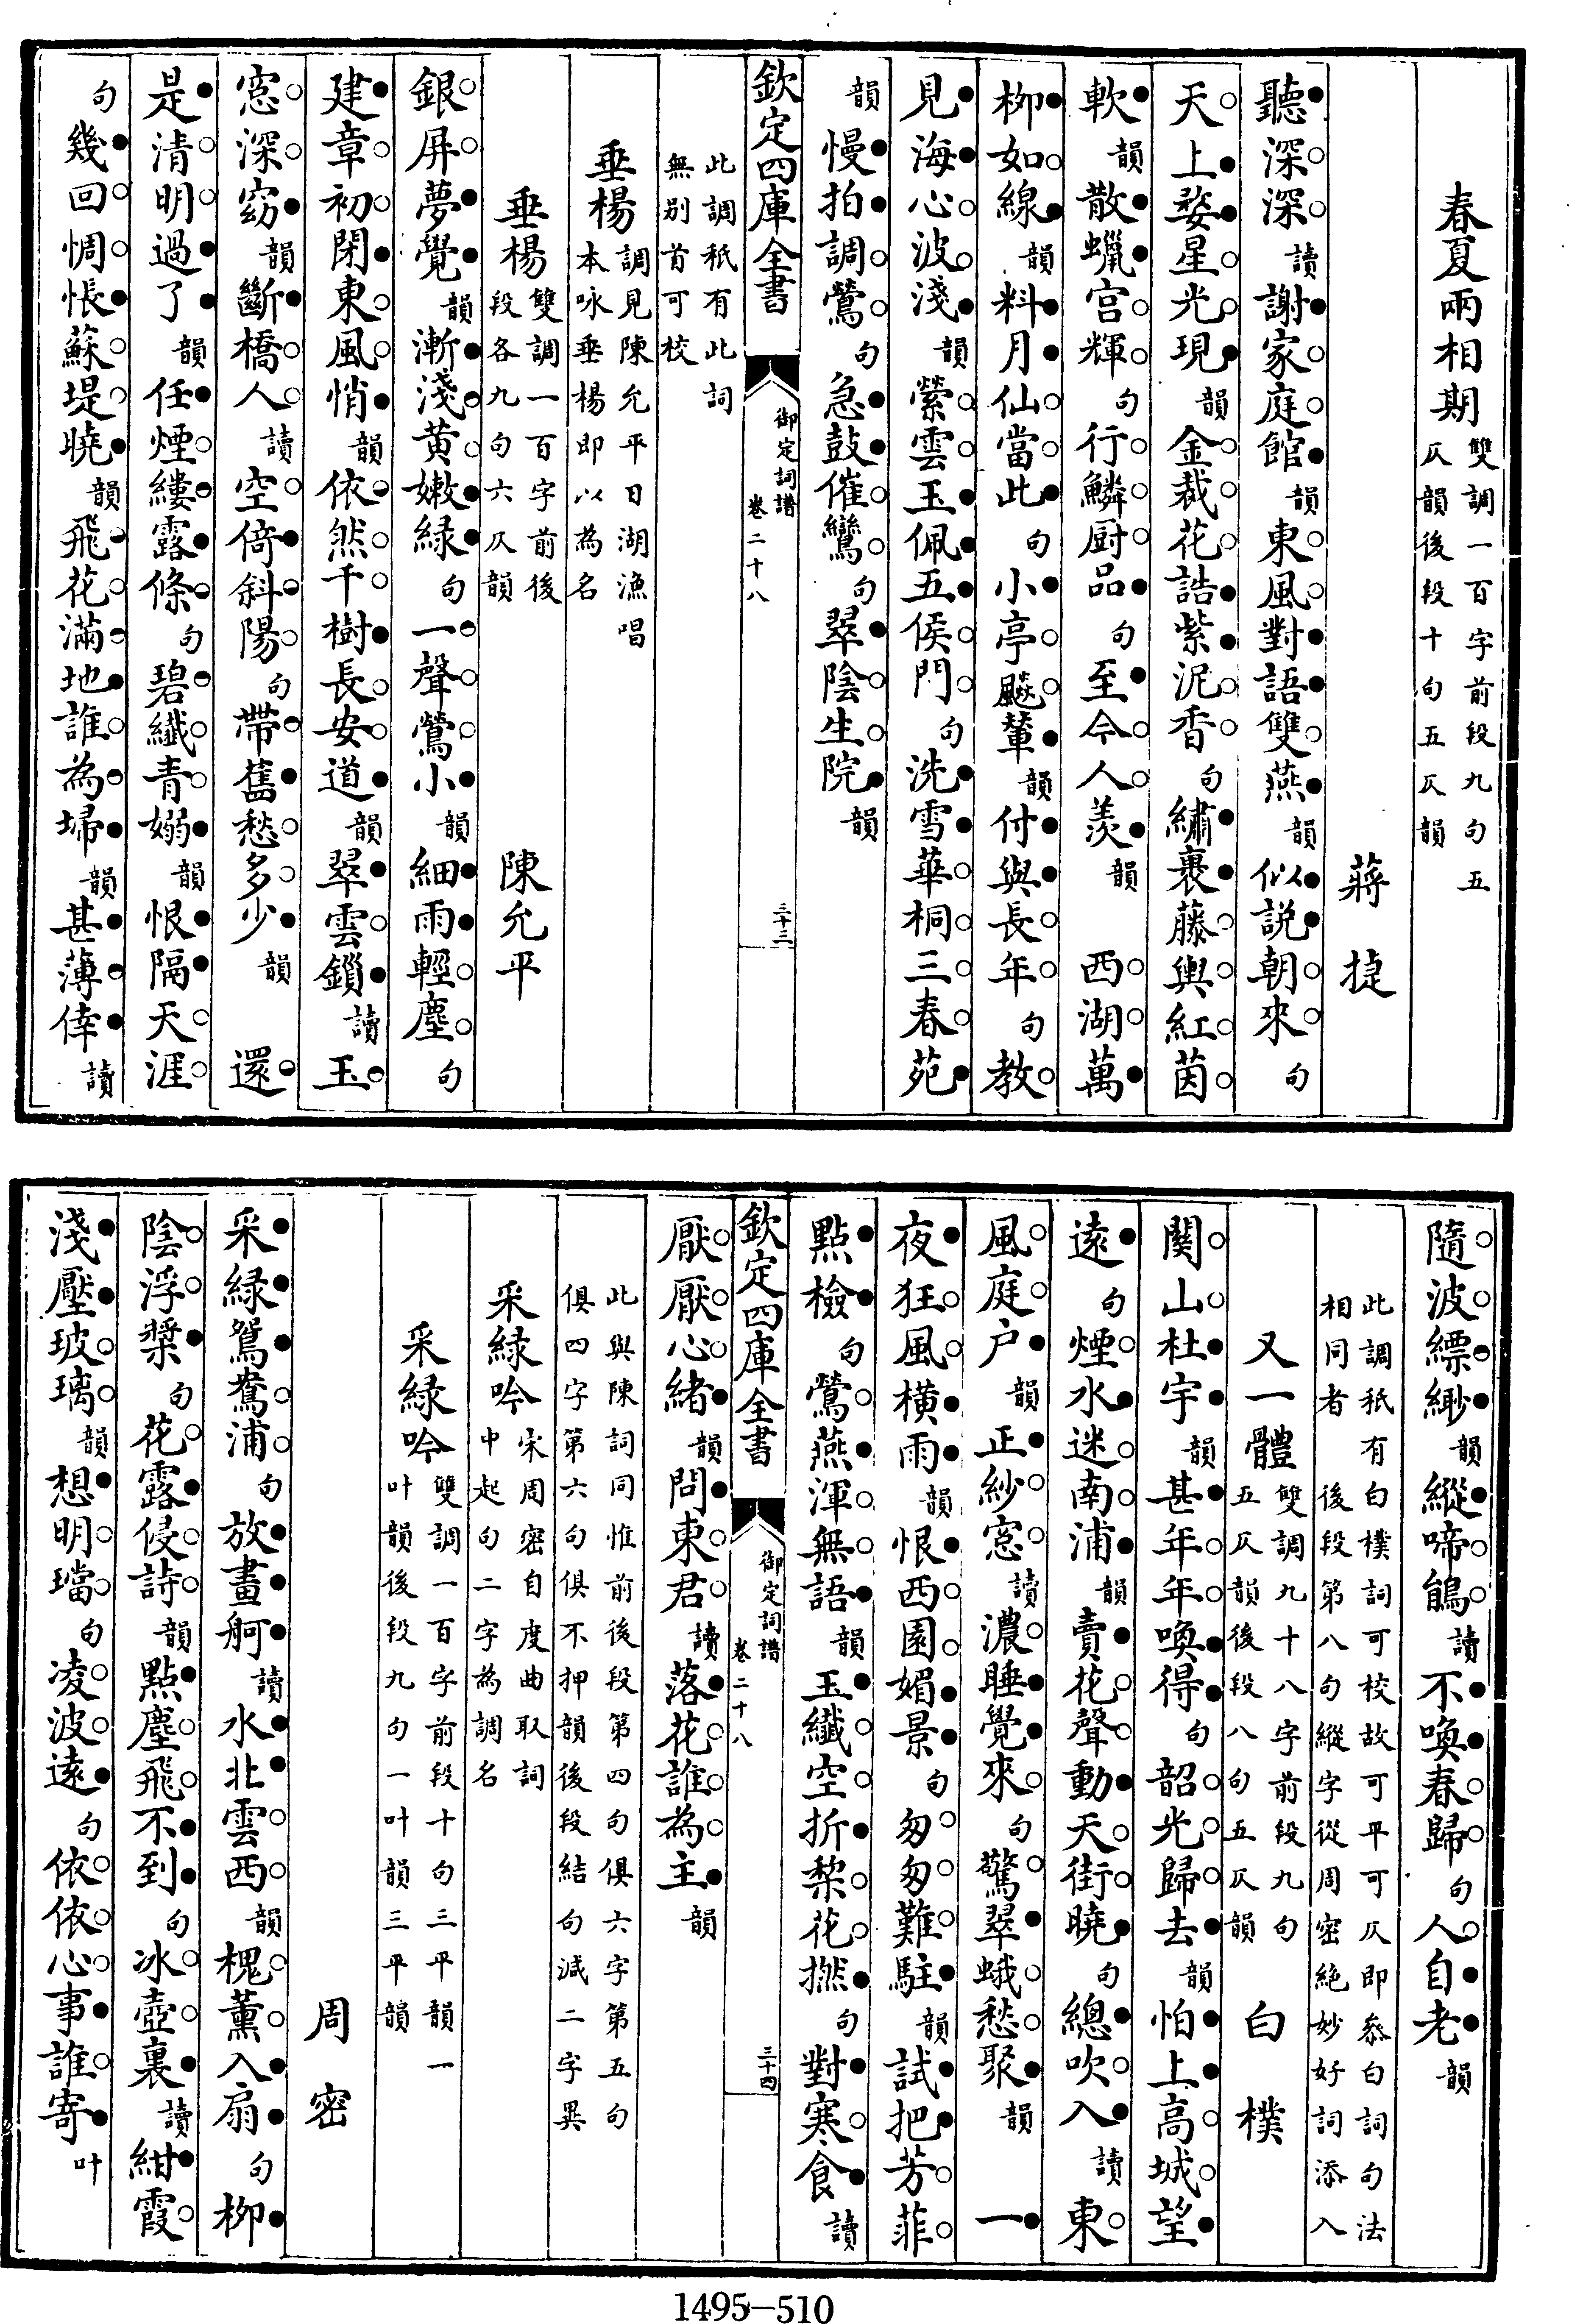 春夏兩相期雙調一百字前段九句五仄韻後段十句五仄韻
蔣捷
聽深深讀謝家庭館韻東風對語雙燕韻似説朝來句
天上婺星光現韻金裁花誥紫泥香句繡裹藤輿紅茵
軟韻散蠟宫輝句行鱗厨品句至今人羡韻　西湖萬
栁如線韻料月仙當此句小亭飈輦韻付與長年句教
見海心波淺韻縈雲玉佩五侯門句洗雪華桐三春苑
韻慢拍調鶯句急鼓催鸞句翠陰生院韻
欽定四庫全書　御定詞譜　卷二十八　三十三
此調秖有此詞無别首可校
垂楊調見陳允平日湖漁唱本咏垂楊即以為名
垂楊雙調一百字前後段各九句六仄韻　陳允平
銀屏夢覺韻漸淺黄嫩緑句一聲鶯小韻細雨輕塵句
建章初閉東風悄韻依然千樹長安道韻翠雲鎖讀玉
窓深窈韻斷橋人讀空倚斜陽句帶舊愁多少韻　還
是清明過了韻任煙縷露條句碧纖青嫋韻恨隔天涯
句幾回惆悵蘇堤曉韻飛花滿地誰為埽韻甚薄倖讀
隨波縹緲韻縱啼鵑讀不喚春歸句人自老韻
此調秖有白樸詞可校故可平可仄即叅白詞句法相同者　後段第八句縱字從周密絶妙好詞添入
又一體雙調九十八字前段九句五仄韻後段八句五仄韻　白樸
關山杜宇韻甚年年喚得句韶光歸去韻怕上高城望
遠句煙水迷南浦韻賣花聲動天街曉句總吹入讀東
風庭户韻正紗窓讀濃睡覺來句驚翠蛾愁聚韻　一
夜狂風横雨韻恨西園媚景句匆匆難駐韻試把芳菲
點檢句鶯燕渾無語韻玉纖空折棃花撚句對寒食讀
欽定四庫全書　御定詞譜　卷二十八　三十四
厭厭心緒韻問東君讀落花誰為主韻
此與陳詞同惟前後段第四句俱六字第五句俱四字第六句俱不押韻後段結句減二字異
采緑吟宋周密自度曲取詞中起句二字為調名
采緑吟雙調一百字前段十句三平韻一叶韻後段九句一叶韻三平韻
周密
采緑鴛鴦浦句放畫舸讀水北雲西韻槐薰入扇句栁
陰浮槳句花露侵詩韻點塵飛不到句冰壺裏讀紺霞
淺壓玻璃韻想明璫句凌波遠句依依心事誰寄叶
1495—510